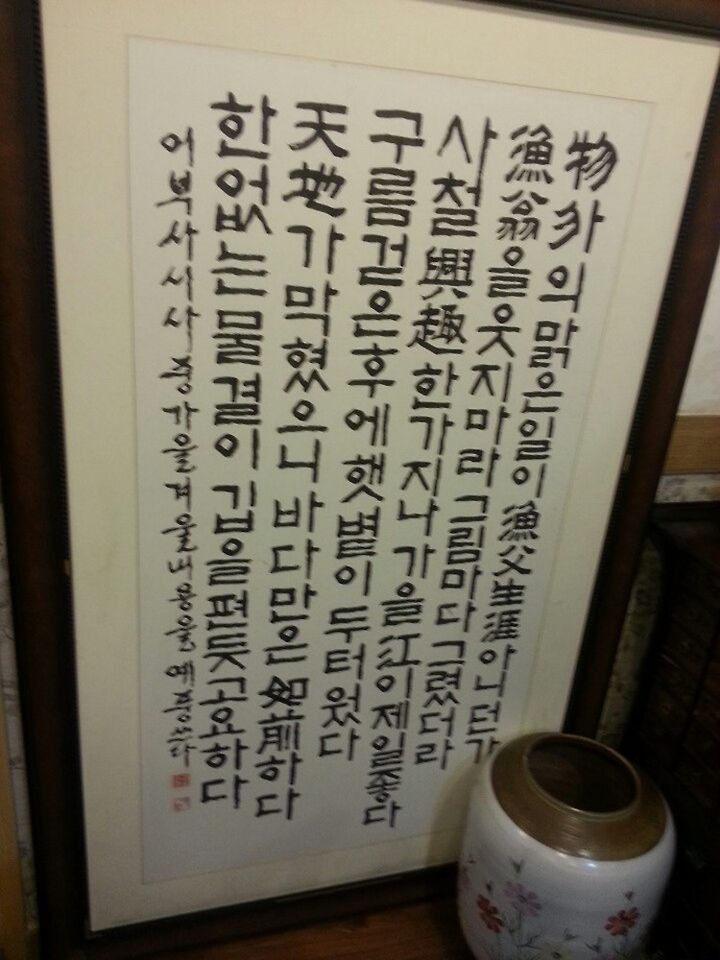 物外의맑은일이漁父生涯아니던가
漁翁을웃지마라그림마다그렸더라
사철興趣한가지나가을江이제일좋다
구름걷은후에햇볕이두터웠다
天地가막혔으니바다만은如前하다
한없는물결이깁을편듯고요하다
어부사시사중가을겨울내용을예풍쓰다